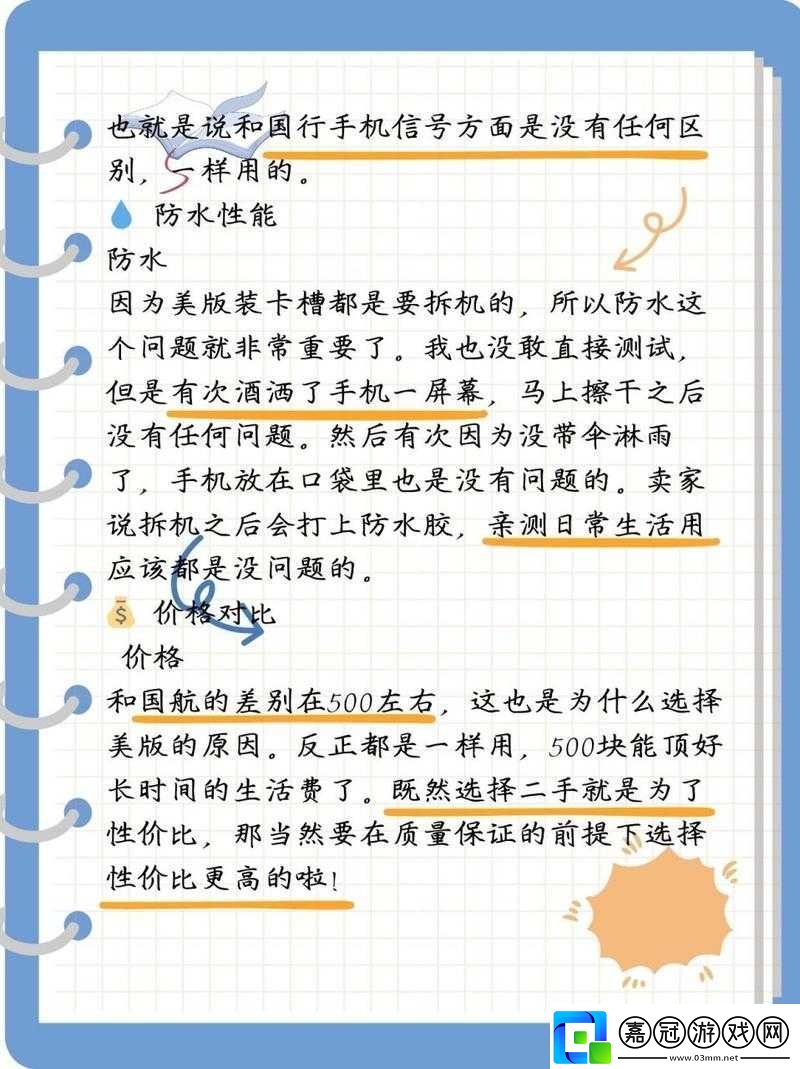 也就是说和国行手机信号方面是没有任何区
别，一样用的。
防水性能
防水
因为美版装卡槽都是要拆机的，所以防水这
个问题就非常重要了。我也没敢直接测试，
但是有次酒洒了手机一屏幕，马上擦干之后
没有任何问题。然后有次因为没带伞淋雨
了，手机放在口袋里也是没有问题的。卖家
说拆机之后会打上防水胶，亲测日常生活用
应该都是没问题的。
$ 价格对比
价格
和国航的差别在500左右，这也是为什么选择
美版的原因。反正都是一样用，500块能顶好
长时间的生活费了。既然选择二手就是为了
性价比，那当然要在质量保证的前提下选择
性价比更高的啦！
嘉冠游戏网
www.03mm.net